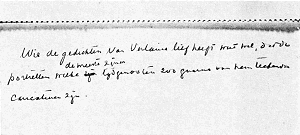 Wie de gedichten van Verlaine lief heeft weet wel, dat de
de meeste zijner
portretten welke zijn tijdgenooten zoo gaarne van hem teekenden
caricaturen zijn.